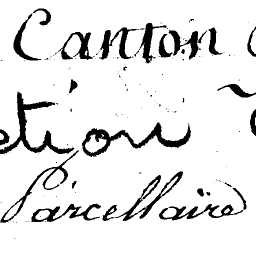 Canton
ction
Parcellaire